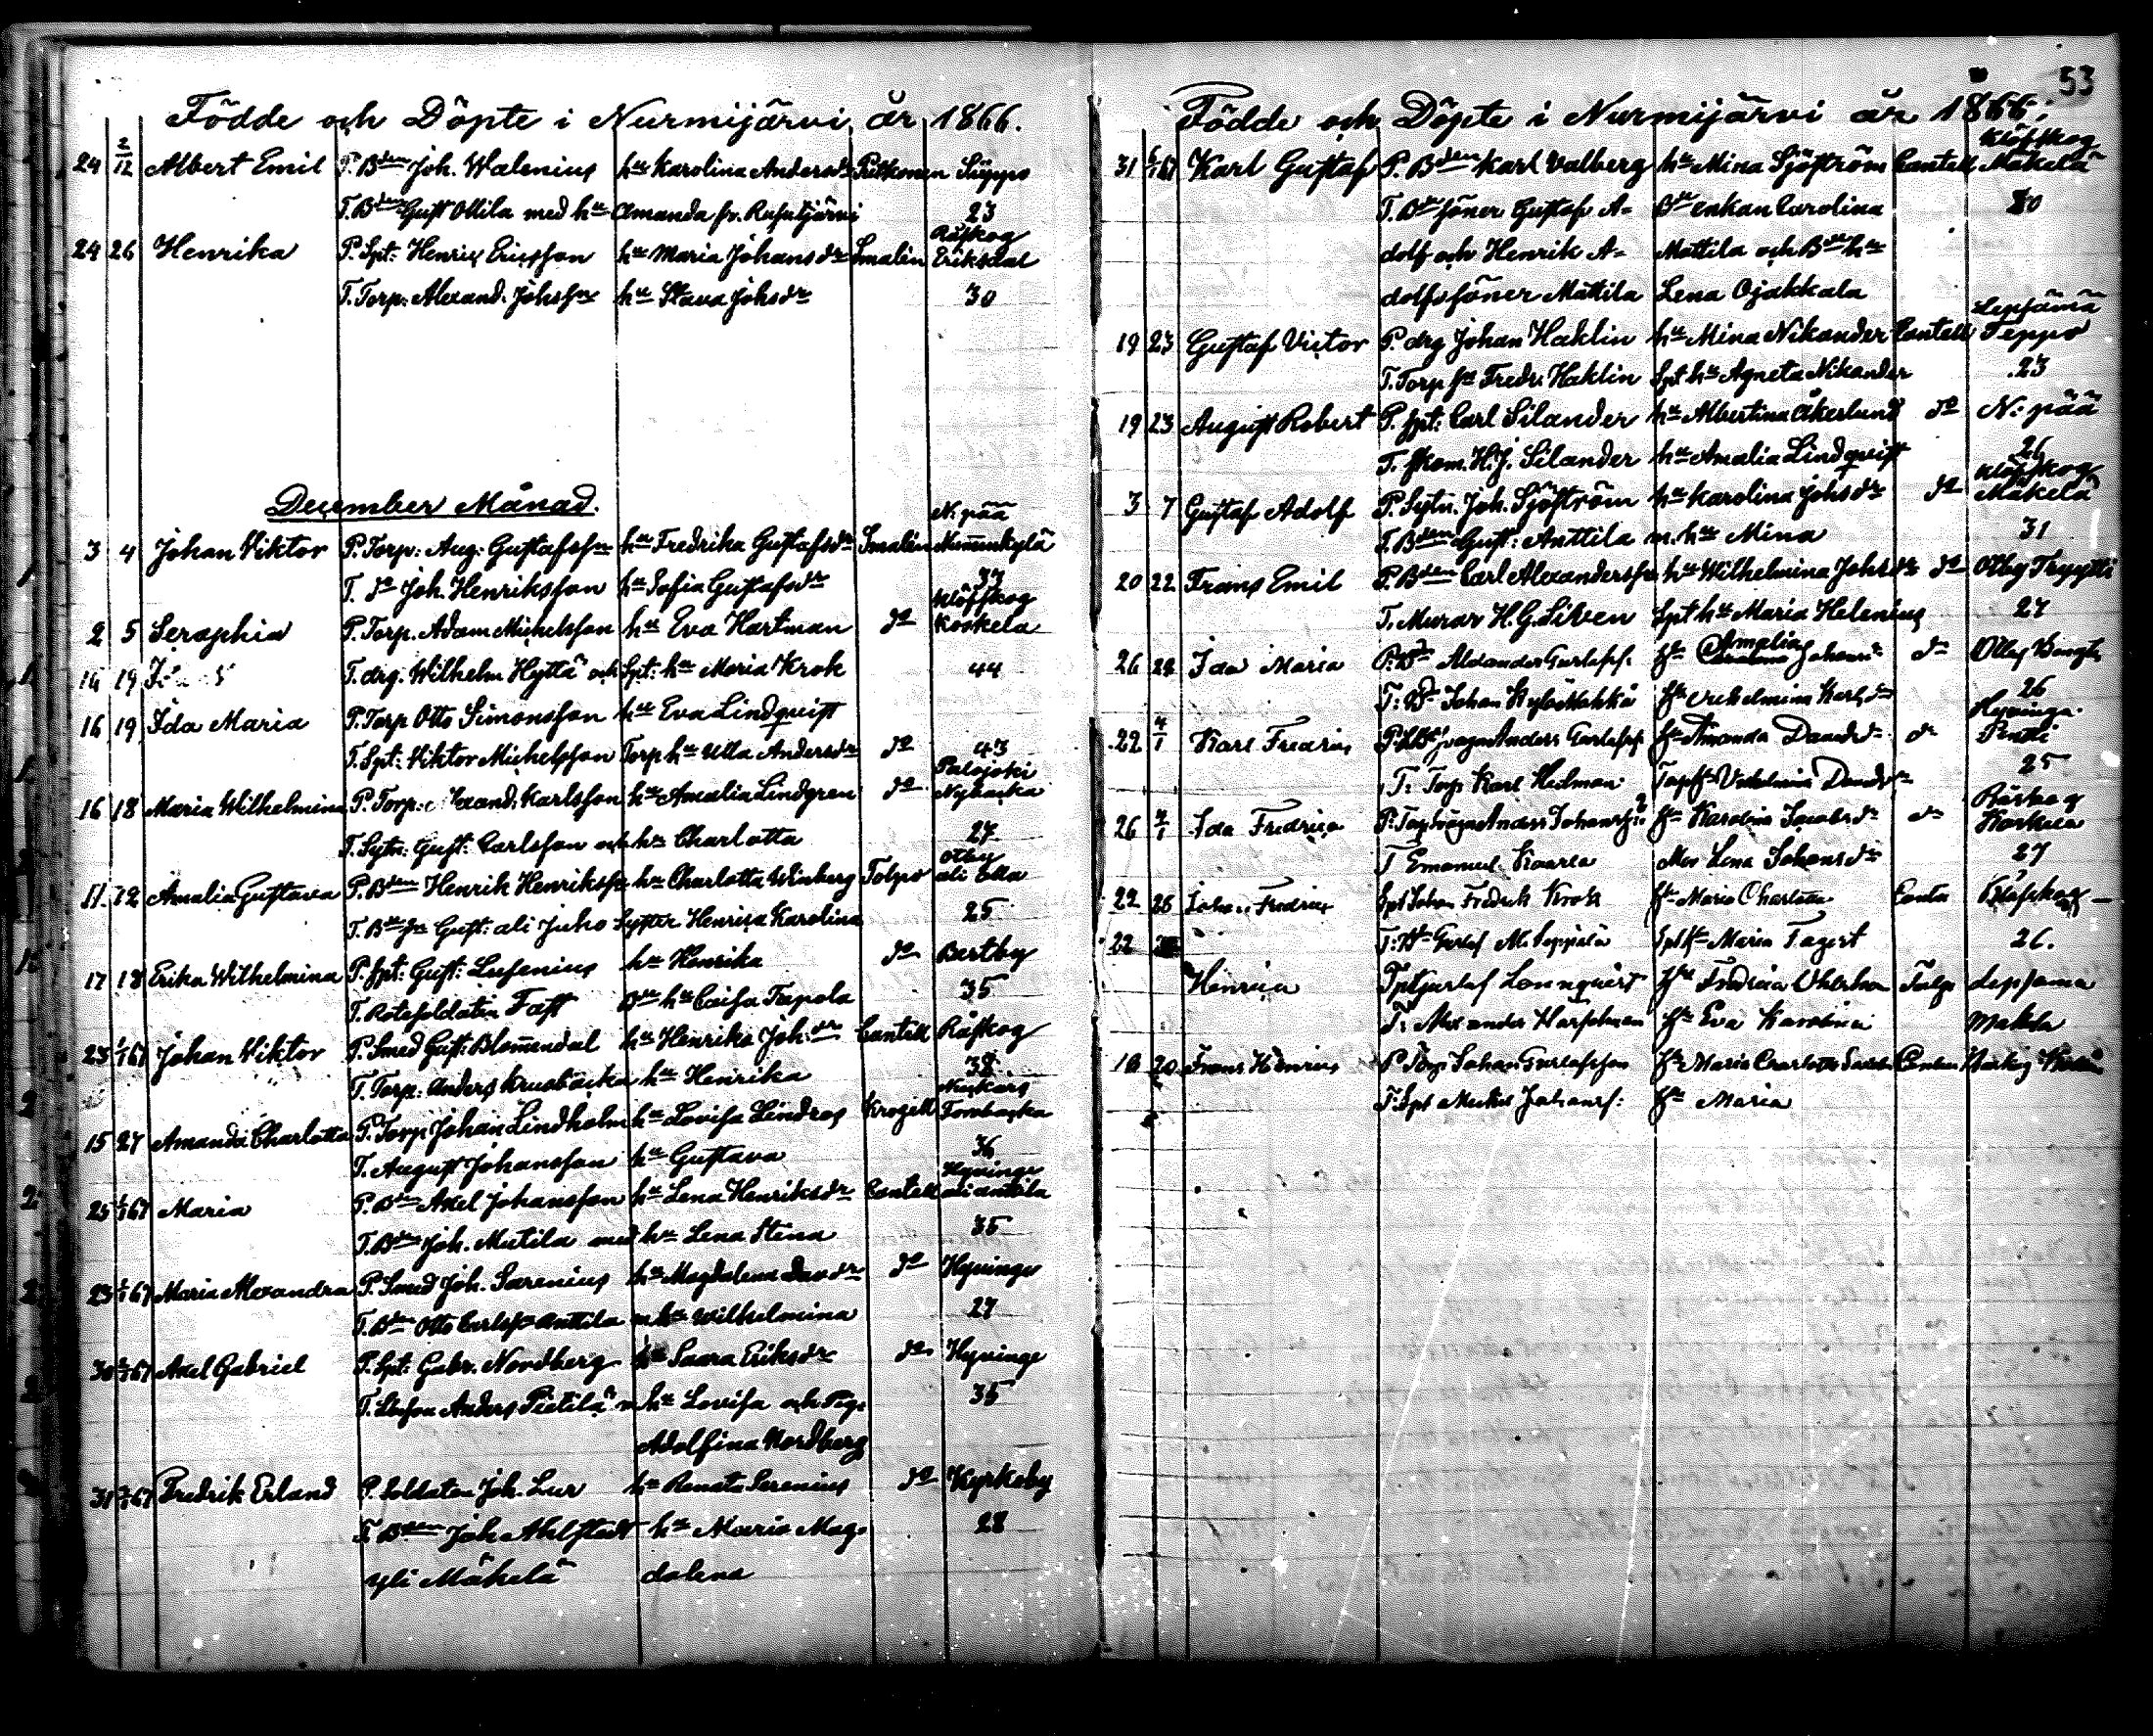 Födde och Döpte i Nurmijärvi år 1866.
24 2/12 Albert Emil P. Bden Joh. Walenius hu Karolina Andersdr Putkonen Süppo
T. Bden Gust Ollila med hu Amanda fr. Rusutjärvi 23
Råskog
24 26 Henrika P. Spt: Henric Ericsson hu Maria Johansdr Smalén Eriksdal
T. Torp: Alexand. Johsson hu Stava Johsdr 30
December Månad.
N: pää
3 4 Johan Viktor P. Torp: Aug: Gustafsson hu Fredrika Gustafsdr Smalén Nummenkylä
T. do Joh. Henriksson hu Sofia Gustafsdr 33
Klöfskog
2 5 Seraphia P. Torp. Adam Michelsson hu Eva Hartman do Koskela
14 19 T. drg. Wilhelm Hyttä och Spt: hu Maria Krok 44
16 19 Ida Maria P. Torp Otto Simonsson hu Eva Lindqvist
T. Spt: Viktor Michelsson Torp hu Ulla Andersdr do 43
Palojoki
16 18 Maria Wilhelmina P. Torp: Karlsson hu Amalia Lindgren do Nybacka
T. Sytn: Gust: Carlsson och hu Charlotta 27
Otby
11 12 Amalia Gustava P. Bden Henrik Henriksson hu Charlotta Winberg Tolpo ali Olla
T. Bde sn Gust: ali Juho Syster Henrica Karolina 25
17 18 Erika Wilhelmina P. Spt: Gust: Lusenius hu Henrika do Bertby
T. Rotesoldaten Fast Bde hu Caisa Tapola 35
23 1/1 67 Johan Viktor P. Smed Gust: Blommendal hu Henrika Joh.dr Cantell Råskog
T. Torp: Anders Krusbacka hu Henrika 38
Nuckars
15 27 Amanda Charlotta P. Torp Johan Lindholm hu Lovisa Lindros Krogell Tombacka
T. August Johansson hu Gustava 36
Hyvinge
25 1/1 67 Maria P. Bden Axel Johansson hu Lena Henriksdr Cantell ali anttila
T. Bden Joh. Mutila med hu Lena Stina 35
23 1/1 67 Maria Alexandra P. Smed Joh. Sarenius hu Magdalena Davdr do Hyvinge
T. Bden Otto Carlsson Anttila m. hu Wilhelmina 27
30 67 Axel Gabriel P. Spt: Gabr. Nordberg hu Saara Eriksdr do Hyvinge
T. Anders Pietilä m hu Lovisa och Pig. 35
Adolfina Nordberg
31 67 Fredrik Erland P. Soldaten Joh. Lur hu Renata Serenius do Kyrkoby
T. Bden Joh Ahlstedt hu Maria Mag- 28
yli Mäkelä dalena
53
Födde och Döpte i Nurmijärvi år 1866.
Klöfskog
31 6/1 67 Karl Gustaf P. Bden Karl Valberg hu Mina Sjöström Cantell Mäkelä
T. Bde söner Gustaf A- Bde enkan Carolina 30
dolf och Henrik A- Mattila och Bde hu
dolfssöner Mattila Lena Ojakkala
Lepsämä
19 23 Gustaf Victor P. drg Johan Haklin hu Mina Nikander Cantell Teppo
T. Torp sn Fredr. Haklin Spt hu Agneta Nikander 23
19 23 August Robert P. Spt: Carl Silander hu Albertina Åkerlund do N: pää
T. skom. H. J. Silander hu Amalia Lindqvist 26
Klöfskog
3 7 Gustaf Adolf P. Sytn. Joh. Sjöström hu Karolina Johsdr do Mäkelä
T. Bden Gust: Anttila m. hu Mina 31
20 22 Frans Emil P. Bden Carl Alexandersson hu Wilhelmina Johsdr do Otby Tryytti
T. Murar H. G. Siven Spt hu Maria Helenius 27
Amalia
26 29 Ida Maria P. Bd Alexander Gustafss. hu Johansdr do
T: Bd Johan hu Karlsdr 26
Hyvinge
22 4/1 Karl Fredric Anders Gustafsson hu Amanda Davidsdr do Pentti
T: Torp Karl Hedman Torp hu Vilhelmina Davidsdr 25
Råskog
26 4/1 Ida Fredrica P: Anders Johansson hu Karolina Jacobsdr do Koskela
T Emanuel Kaarla Lena Johansdr 27
22 26 Johan Fredric Spt Johan Fredrik Krok hu Maria Charlotta Klöfskog
22 T: Bd Gustaf Spt hu Maria Fagert 26.
Henrica Spt Gustaf Lönnqvist hu Fredrica Tulp Lepsämä
T: Alexander hu Eva Karolina Mäkelä
16 20 Frans Henric P Torp Johan Gustafsson hu Maria Charlotta
T: Spt Michel Johanss: hu Maria